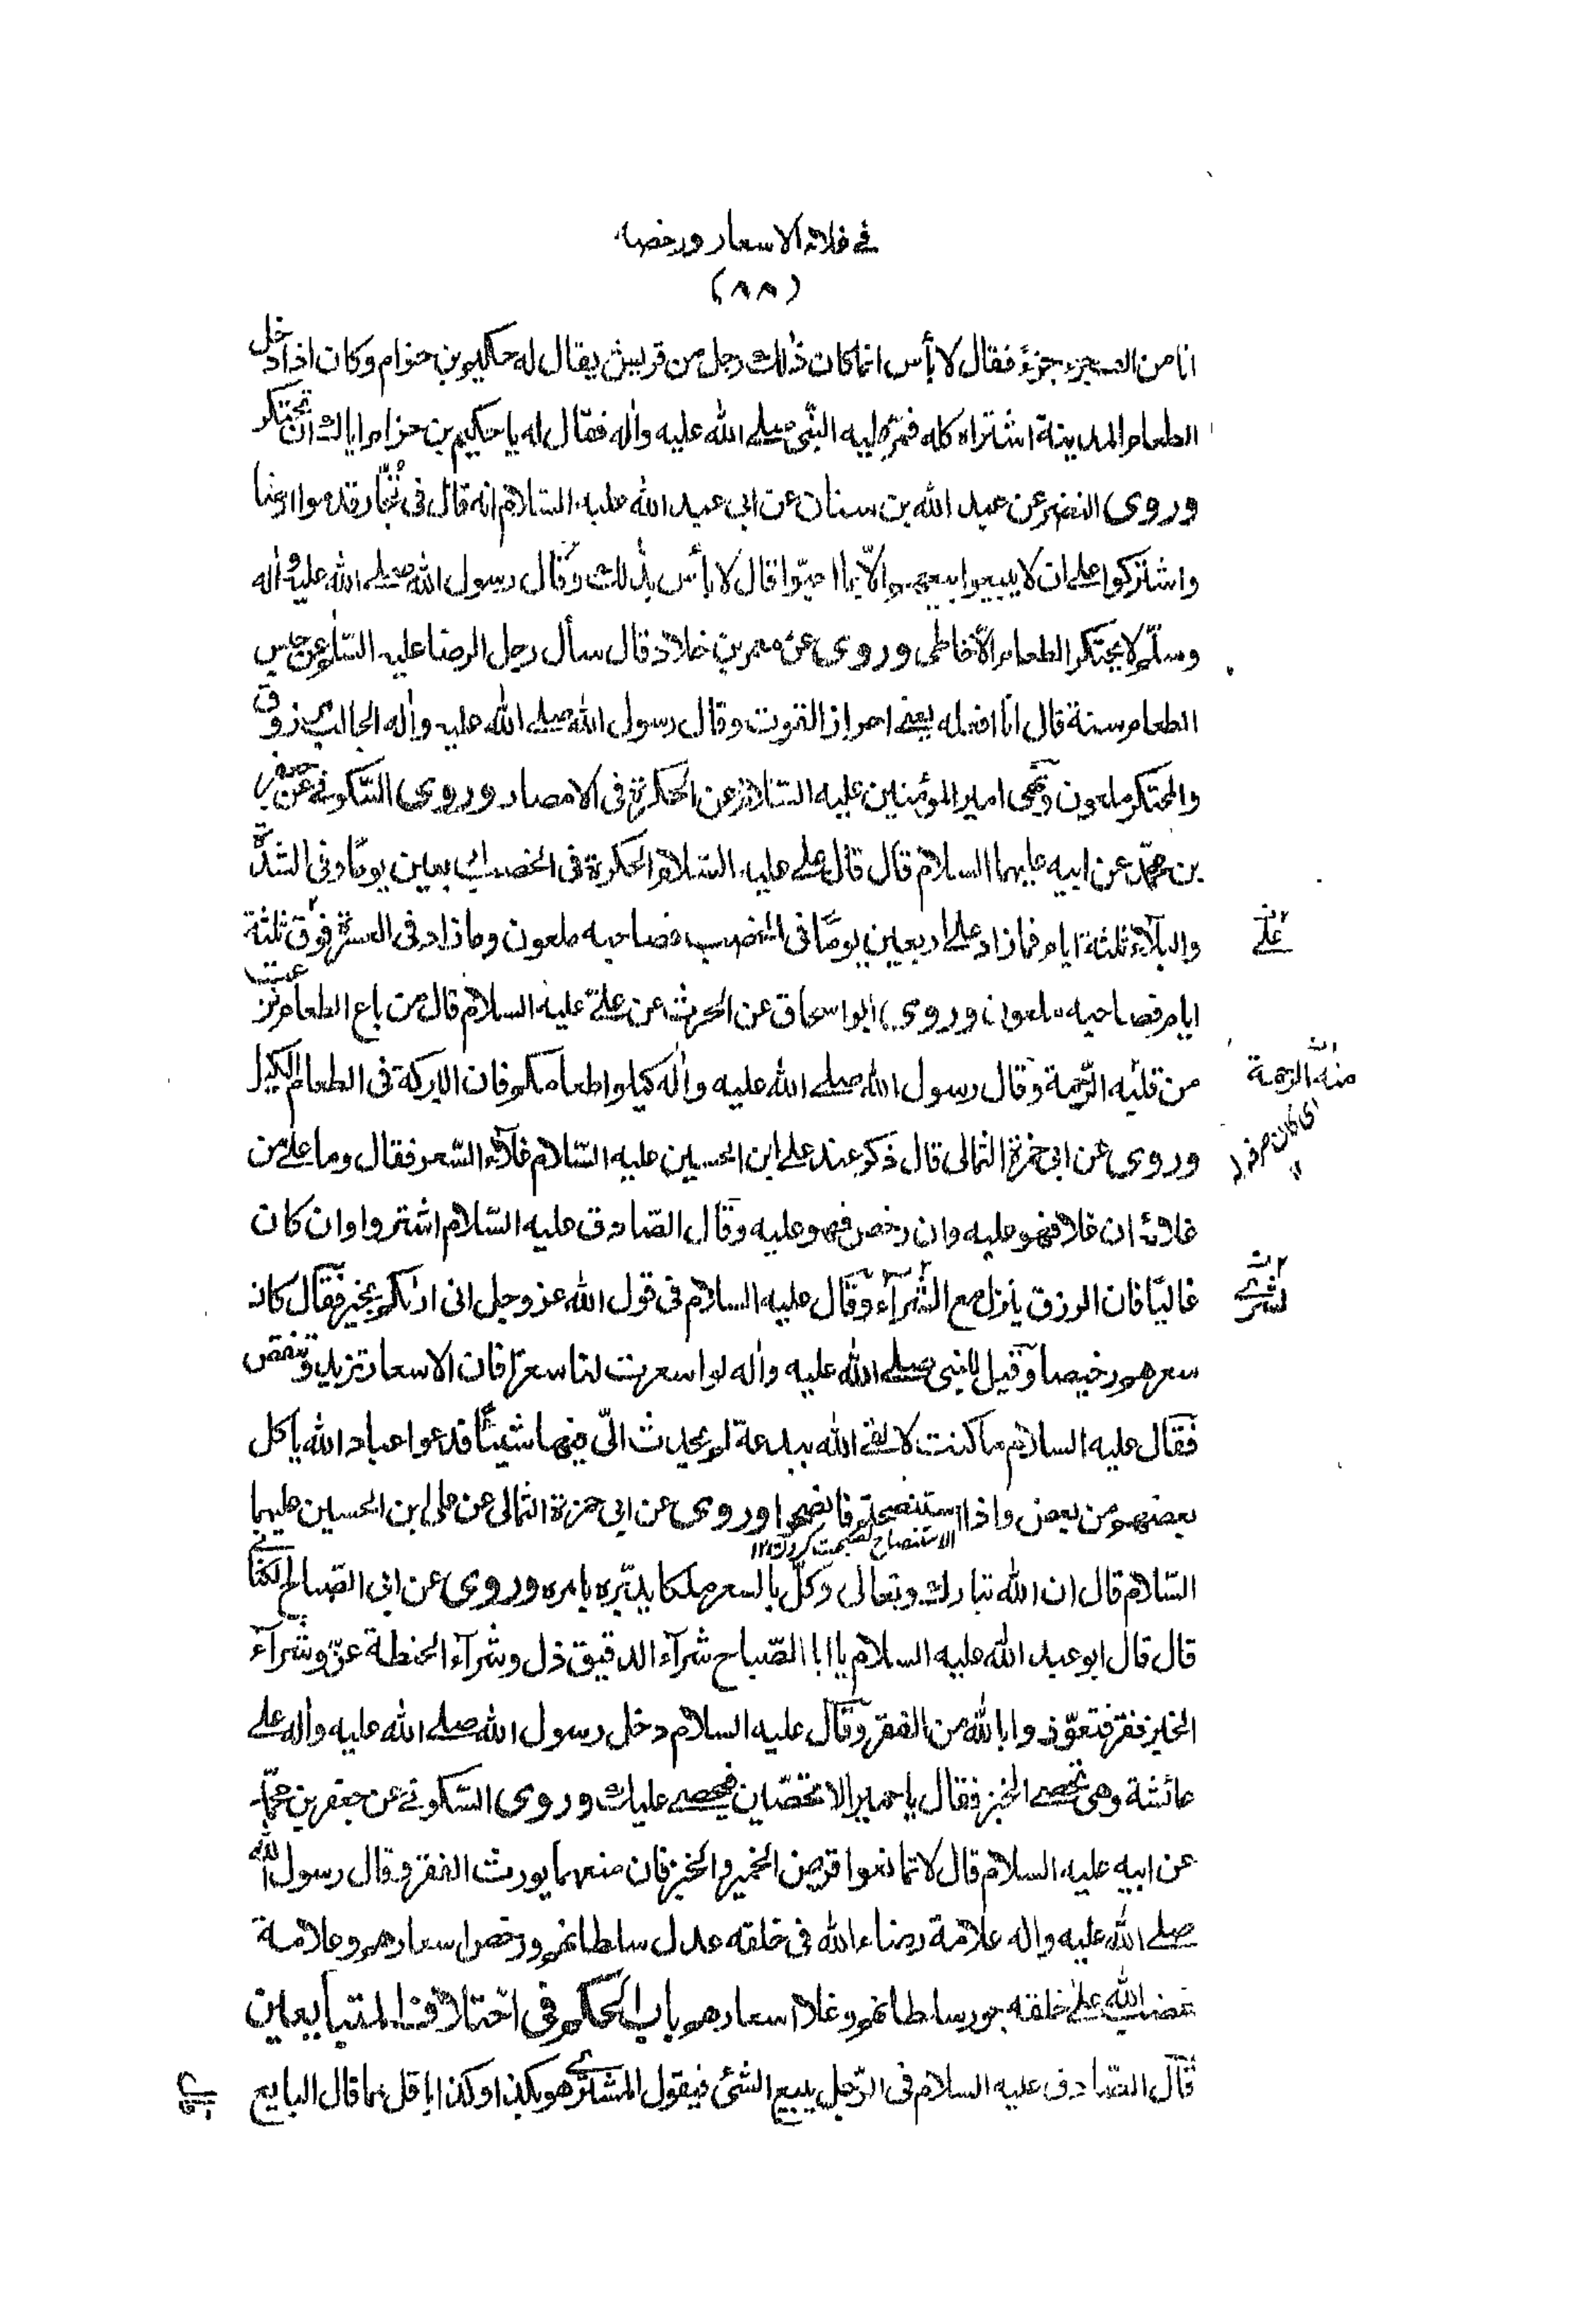 في غلائه الاسعار ورخصه
(٨٨)
انا من الف جزء جزءً فقال لا بأس انما كان ذلك رجل من قريش يقال له حكيم بن حزام وكان اذا دخل
الطعام المدينة اشتراه كله فمرّ عليه النبّي صلى الله عليه واله فقال له يا حكيم بن حزام اياك ان تحتكر
وروى النضر عن عبد الله بن سنان عن ابي عبد الله عليه السّلام انه قال في تُجّار قدموا ارضا
واشتركوا على ان لا يبيعوا بيعهم الّا بما احبّوا قال لا بأس بذلك وقال رسول الله صلى الله عليه واله
وسلّم لا يحتكر الطعام الّا خاطئ وروى عن معمر بن خلاد قال سأل رجل الرضا عليه السّلم عن حبس
الطعام سنة قال انا افعله يعنى احراز القوت وقال رسول الله صلى الله عليه واله الجالب مرزوق
والمحتكر ملعون ونهى امير المؤمنين عليه السّلام عن الحكرة في الامصار وروى السّكوني عن جعفر
بن محمّد عن ابيه عليهما السلام قال قال على عليه السّلام الحكرة في الخصب اربعين يومًا وفي الشدّة
والبلاء ثلثة ايام فما زاد على اربعين يومًا في الخصب فصاحبه ملعون وما زاد في العسرة فوق ثلثة
ايام فصاحبه ملعون وروى ابو اسحاق عن الحرث عن علىّ عليه السلام قال من باع الطعام نزعت
من قلبه الرّحمة وقال رسول الله صلى الله عليه واله كيلوا طعامكم فان البركة في الطعام المكيل
وروى عن ابي حمزة الثمالى قال ذكر عند على ابن الحسين عليه السّلام غلاء السّعر فقال وما علىّ من
غلائه ان غلا فهو عليه وان رخص فهو عليه وقال الصّادق عليه السّلام اشتروا وان كان
غاليًا فان الرزق ينزل مع الشّراء وقال عليه السلام في قول الله عز وجل اني اراكم بخير فقال كان
سعرهم رخيصا وقيل للنبي صلى الله عليه واله لو اسعرت لنا سعرًا فان الاسعار تزيد وتنقص
فقال عليه السلام ما كنت لالقى الله ببدعة لم يحدث الىّ فيها شيئًا فدعوا عباد الله ياكل
بعضهم من بعض واذا استنصحتم فانصحوا وروى عن ابي حمزة الثمالى عن على ابن الحسين عليهما
الاستنصاح نصيحت كردن ١٢
السّلام قال ان الله تبارك وتعالى وكّل بالسعر ملكا يدبّره بامره وروى عن ابي الصّباح الكناني
قال قال ابو عبد الله عليه السلام يا ابا الصّباح شراء الدقيق ذل وشراء الحنطة عزّ وشراء
الخبز فقر فتعوّذوا بالله من الفقر وقال عليه السلام دخل رسول الله صلى الله عليه واله على
عائشة وهى تحصى الخبز فقال يا حميرا لا تحصّين فيحصى عليك وروى السّكوني عن جعفر بن محمّد
عن ابيه عليه السلام قال لا تمانعوا قرض الخمير والخبز فان منعهما يورث الفقر وقال رسول الله
صلى الله عليه واله علامة رضاء الله في خلقه عدل سلطانهم ورخص اسعارهم وعلامة
غضب الله على خلقه جور سلطانهم وغلا اسعارهم باب الحكم في اختلاف المتبايعين
قال الصّادق عليه السلام في الرّجل يبيع الشئ فيقول المشترى هو بكذا وكذا باقل مما قال البايع
على
منه الرحمة